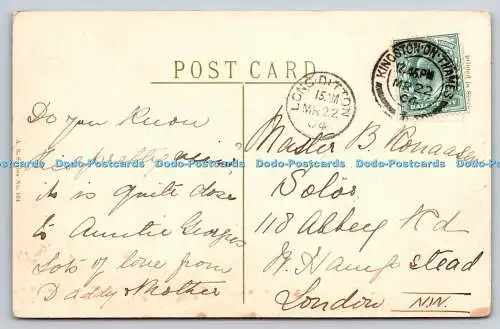 POST CARD
KINGSTON-ON-THAMES
12.45 PM
MR 22
LONG-DITTON
MR 22
04
Do you know
it is quite close
to Auntie Georgies
Lots of love from
Daddy & Mother
Master B.
118 Abbey Rd
W. Hampstead
London N.W.
Dodo-Postcards Dodo-Postcards Dodo-Postcards Dodo-Postcards Dodo-Postcards Dodo-Postcards